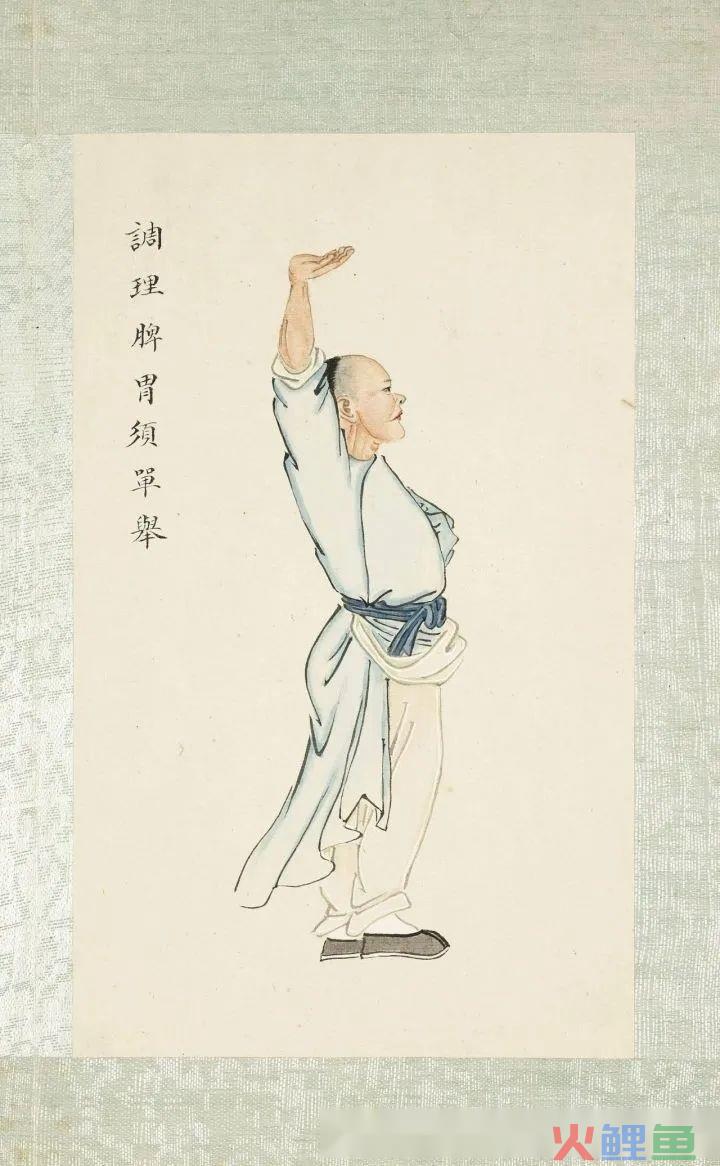 調理脾胃須單舉
火鲤鱼